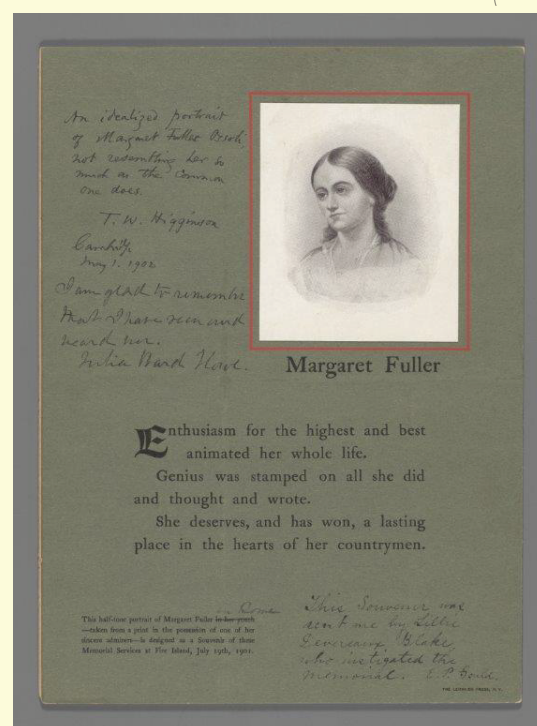 An idealized portrait
of Margaret Fuller Ossoli,
not resembling her so
much as the common
one does.
T. W. Higginson
Cambridge
May 1. 1902
I am glad to remember
that I have seen and
heard her.
Julia Ward Howe.
Margaret Fuller
Enthusiasm for the highest and best
animated her whole life.
Genius was stamped on all she did
and thought and wrote.
She deserves, and has won, a lasting
place in the hearts of her countrymen.
in Rome
This half-tone portrait of Margaret Fuller in her youth
—taken from a print in the possession of one of her
sincere admirers—is designed as a Souvenir of those
Memorial Services at Fire Island, July 19th, 1901.
This Souvenir was
sent me by Lillie
Devereaux Blake
who instigated the
memorial. E. P. Gould.